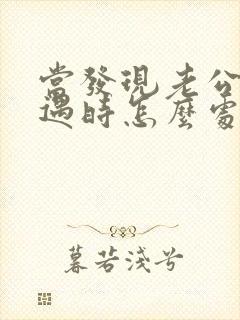 當發現老公
遇時怎麼處
暮若淺兮